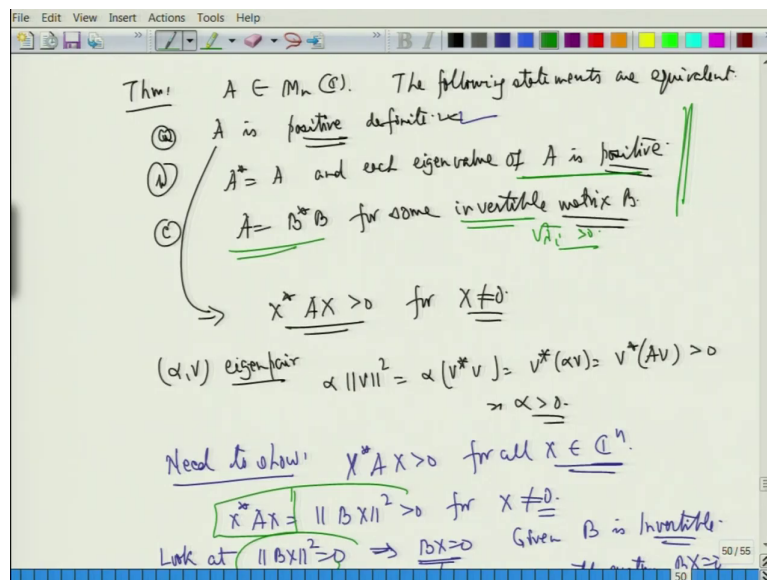 File Edit View Insert Actions Tools Help
Thm: A ∈ Mn(ℂ). The following statements are equivalent.
(a) A is positive definite.
(b) A* = A and each eigenvalue of A is positive.
(c) A = B*B for some invertible matrix B.
√λi > 0.
⇒ x*AX > 0 for X ≠ 0.
(α, v) eigenpair α ||v||² = α(v*v) = v*(αv) = v*(Av) > 0
⇒ α > 0.
Need to show: X*AX > 0 for all X ∈ ℂⁿ.
x*AX = ||BX||² > 0 for X ≠ 0.
Look at ||BX||² = 0 ⇒ BX = 0 Given B is Invertible.
BX = 0
50/55
50